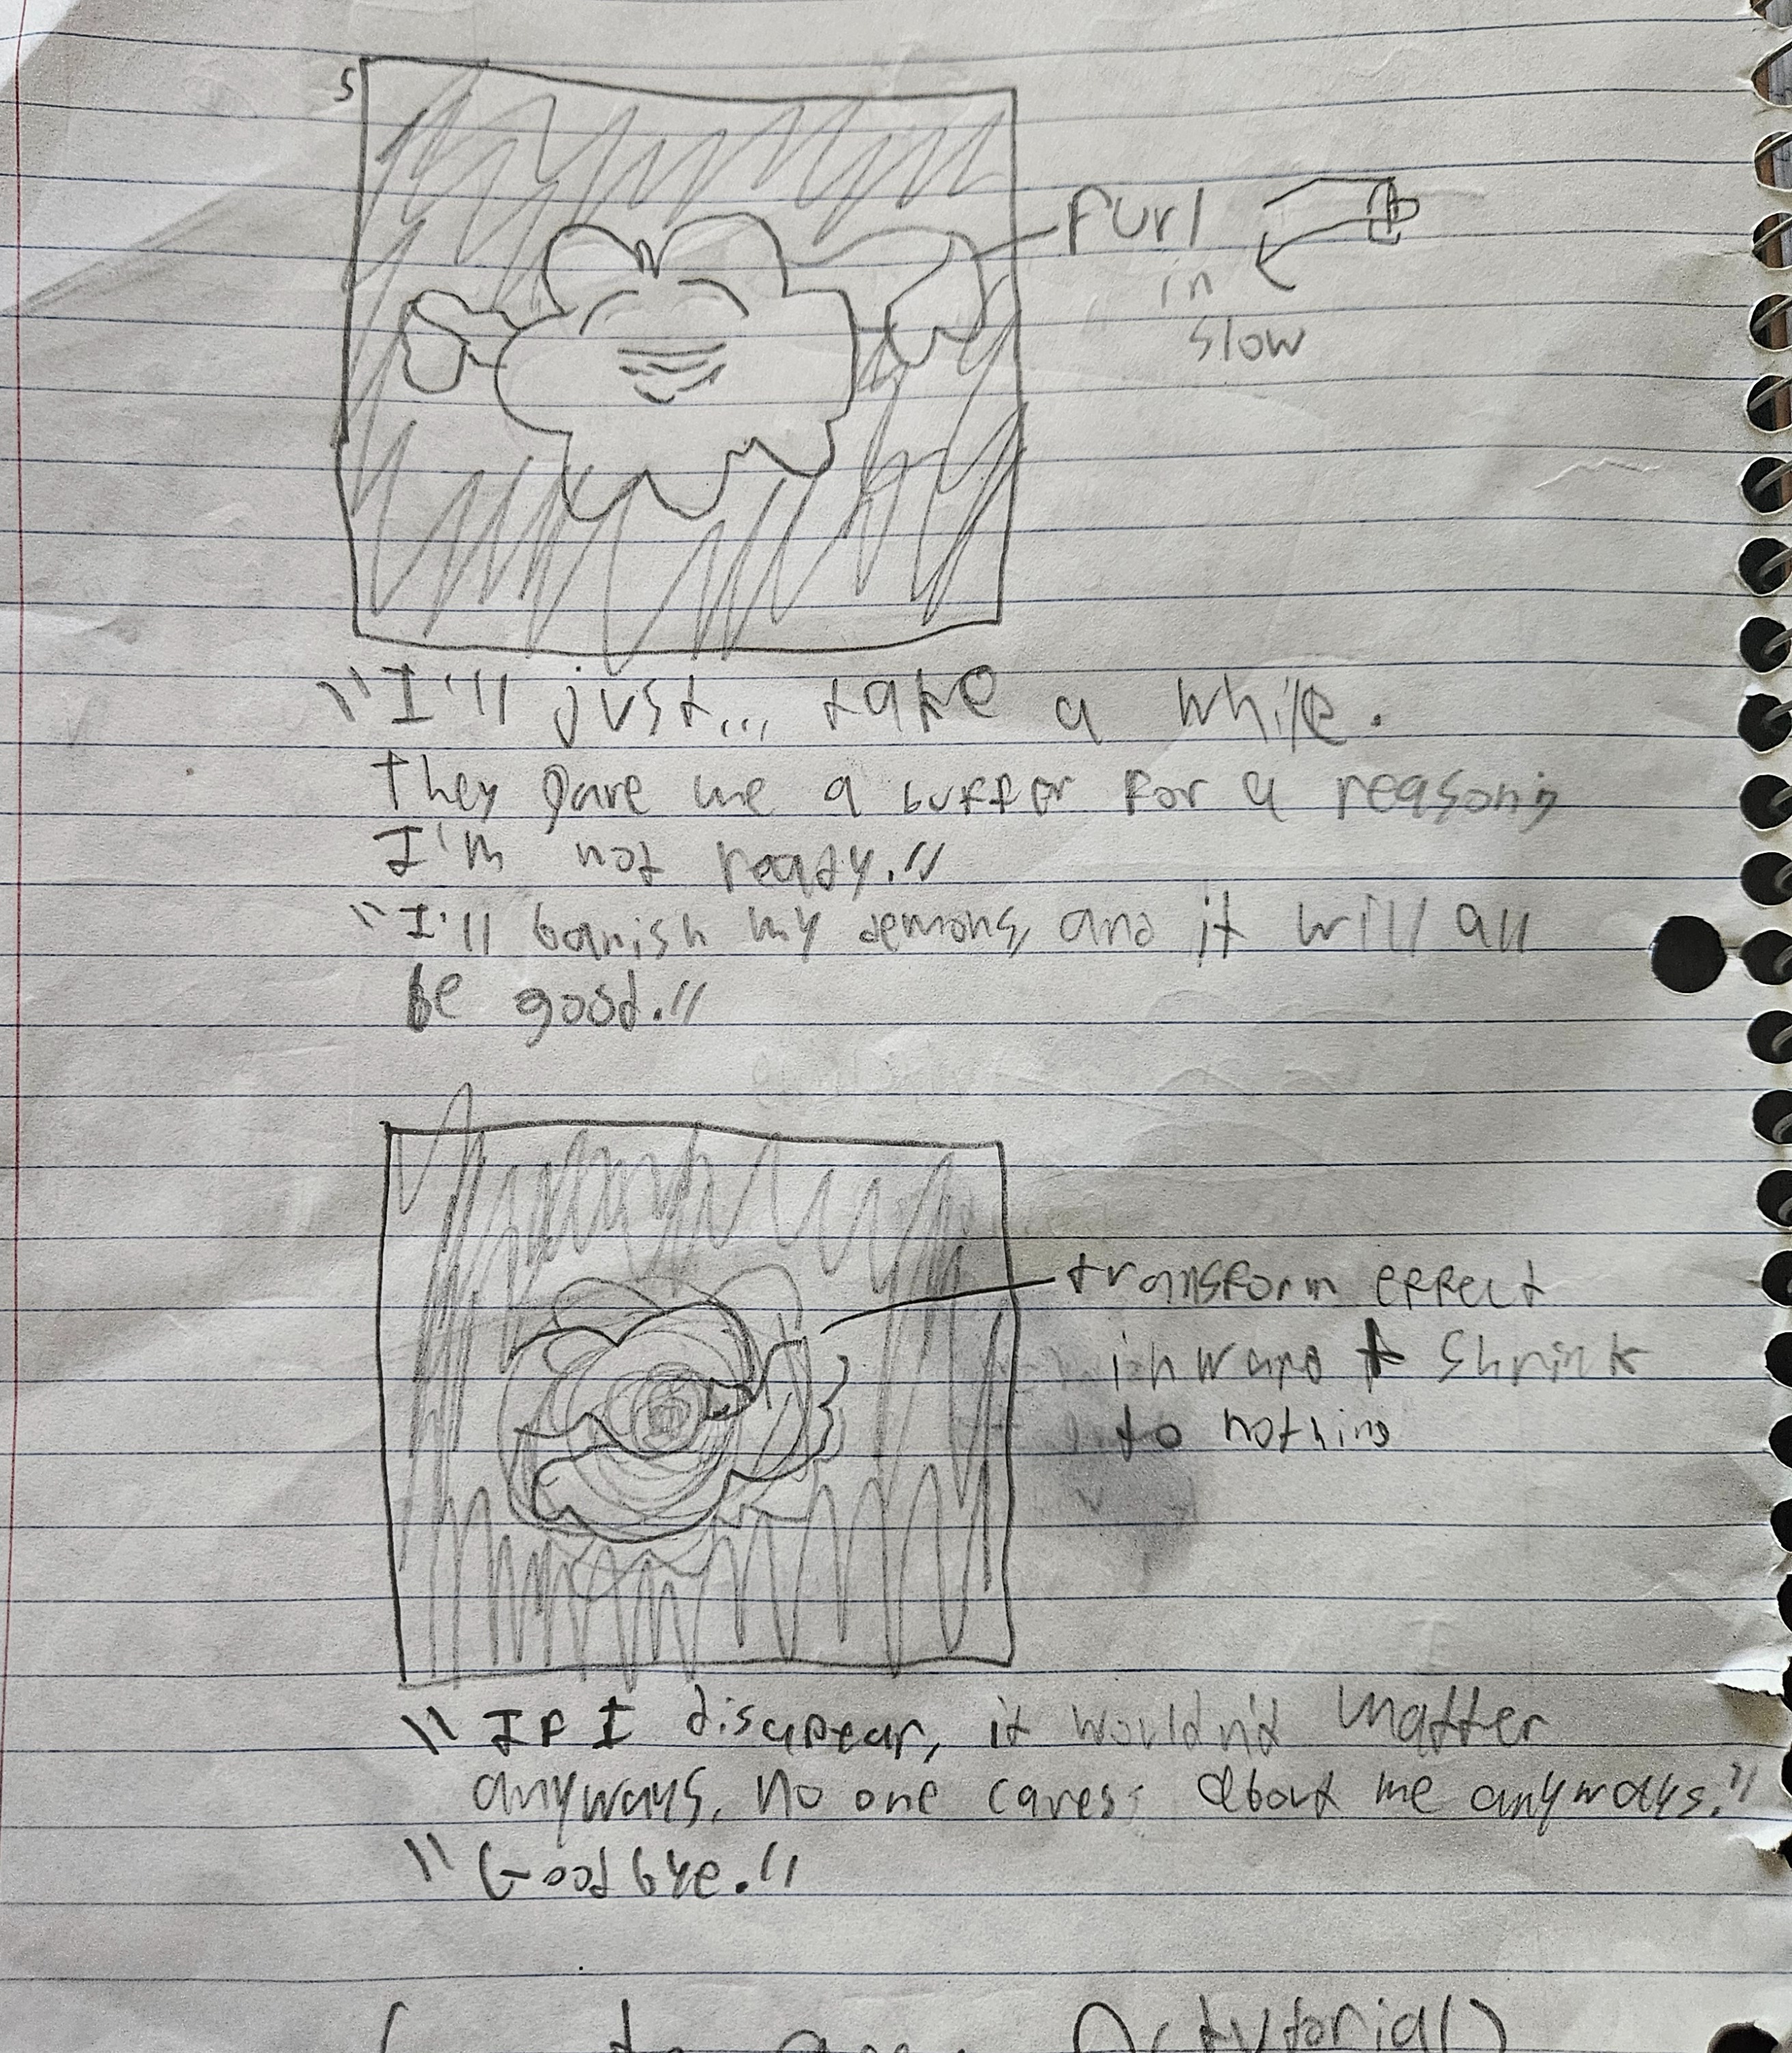 5
Furl
in
slow
"I'll just... take a while.
They gave me a buffer for a reason;
I'm not ready."
"I'll banish my demons, and it will all
be good."
transform effect
inward + shrink
to nothing
"If I disapear, it wouldn't matter
anyways. No one cares about me anyways."
"Goodbye."
(tutorial)